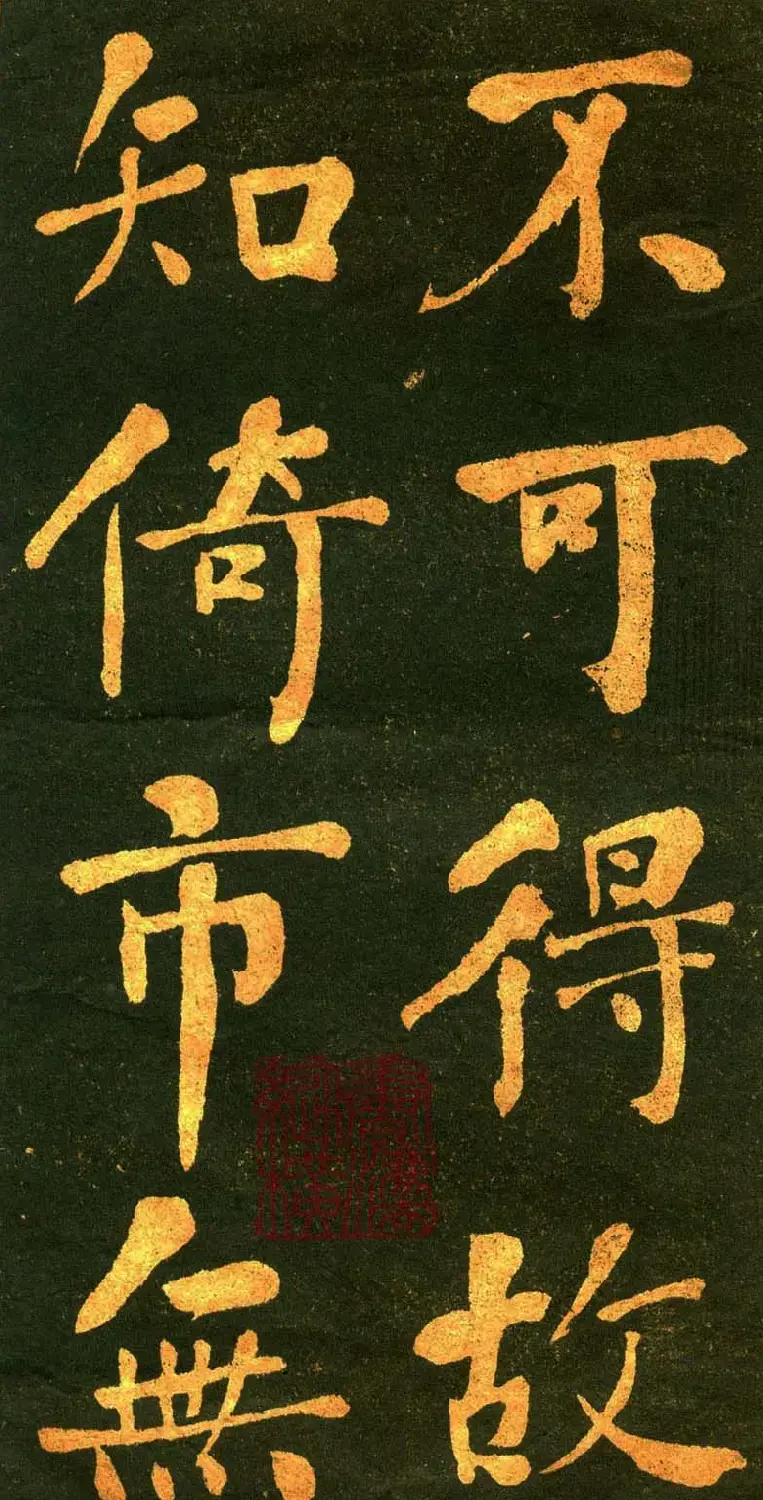 不可得故
知倚市無